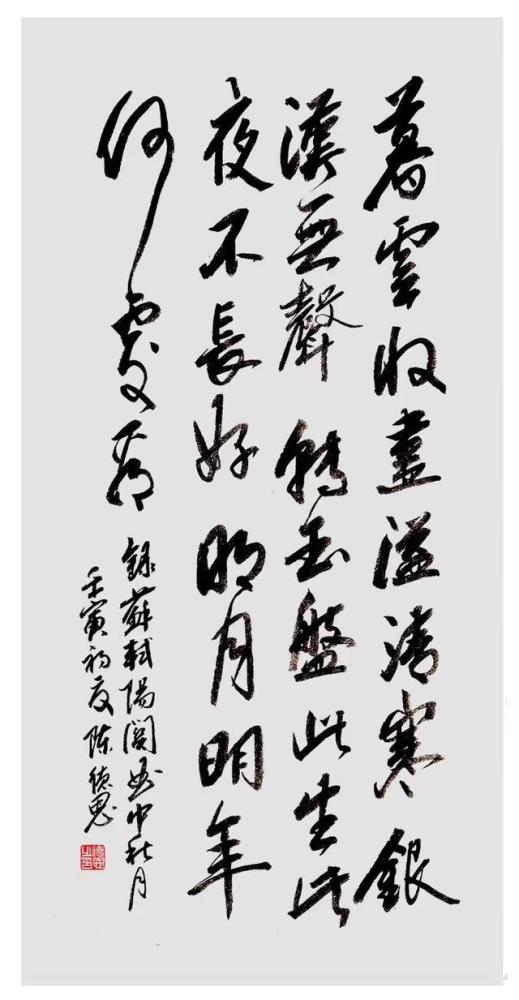 暮雲收盡溢清寒銀
漢無聲轉玉盤此生此
夜不長好明月明年
何處看
錄蘇軾陽關曲中秋月
壬寅初夏陈德思